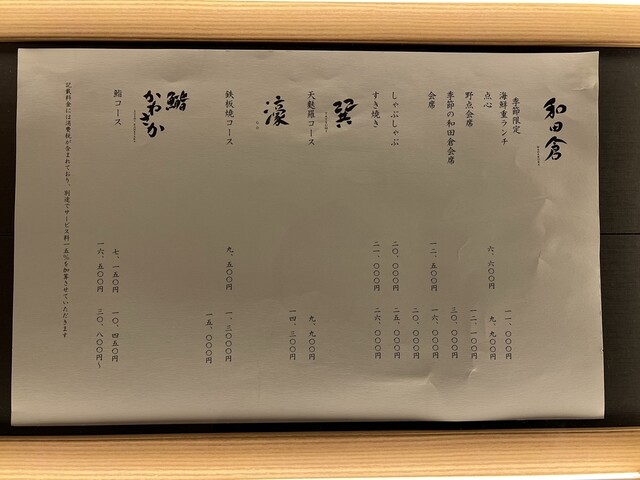 和田倉
季節限定
海鮮重ランチ 一一、〇〇〇円
点心 六、六〇〇円 九、九〇〇円
野点会席 一二、一〇〇円
季節の和田倉会席 三〇、〇〇〇円
会席 一二、五〇〇円 一六、〇〇〇円 二〇、〇〇〇円
しゃぶしゃぶ 二〇、〇〇〇円 二五、〇〇〇円
すき焼き 二一、〇〇〇円 二六、〇〇〇円
巽
天麩羅コース 九、九〇〇円 一四、三〇〇円
濠
鉄板焼コース 九、五〇〇円 一、三〇〇〇円 一五、〇〇〇円
鮨
かねさか
鮨コース 七、一五〇円 一〇、四五〇円 一六、五〇〇円 三〇、八〇〇円〜
記載料金には消費税が含まれており、別途でサービス料一五%を加算させていただきます